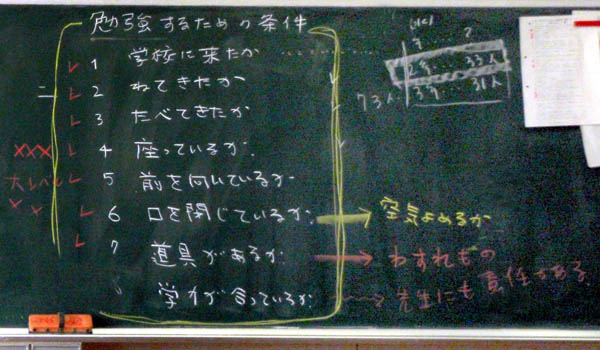 勉強するための条件
1 学校に来たか
2 ねてきたか
3 たべてきたか
4 座っているか。
5 前を向いているか
6 口を閉じているか。→空気よめるか
7 道具があるか。→わすれもの
8 学力が合っているか。→先生にも責任がある。
xxx
2年…33人
73人
3年…31人